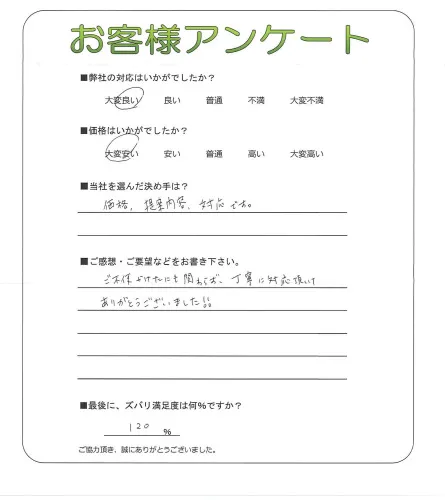 お客様アンケート
■弊社の対応はいかがでしたか?
大変良い 良い 普通 不満 大変不満
■価格はいかがでしたか?
大変安い 安い 普通 高い 大変高い
■当社を選んだ決め手は?
価格、提案内容、対応です。
■ご感想・ご要望などをお書き下さい。
にも関わらず、丁寧に対応頂いて
ありがとうございました!!
■最後に、ズバリ満足度は何%ですか?
120 %
ご協力頂き、誠にありがとうございました。